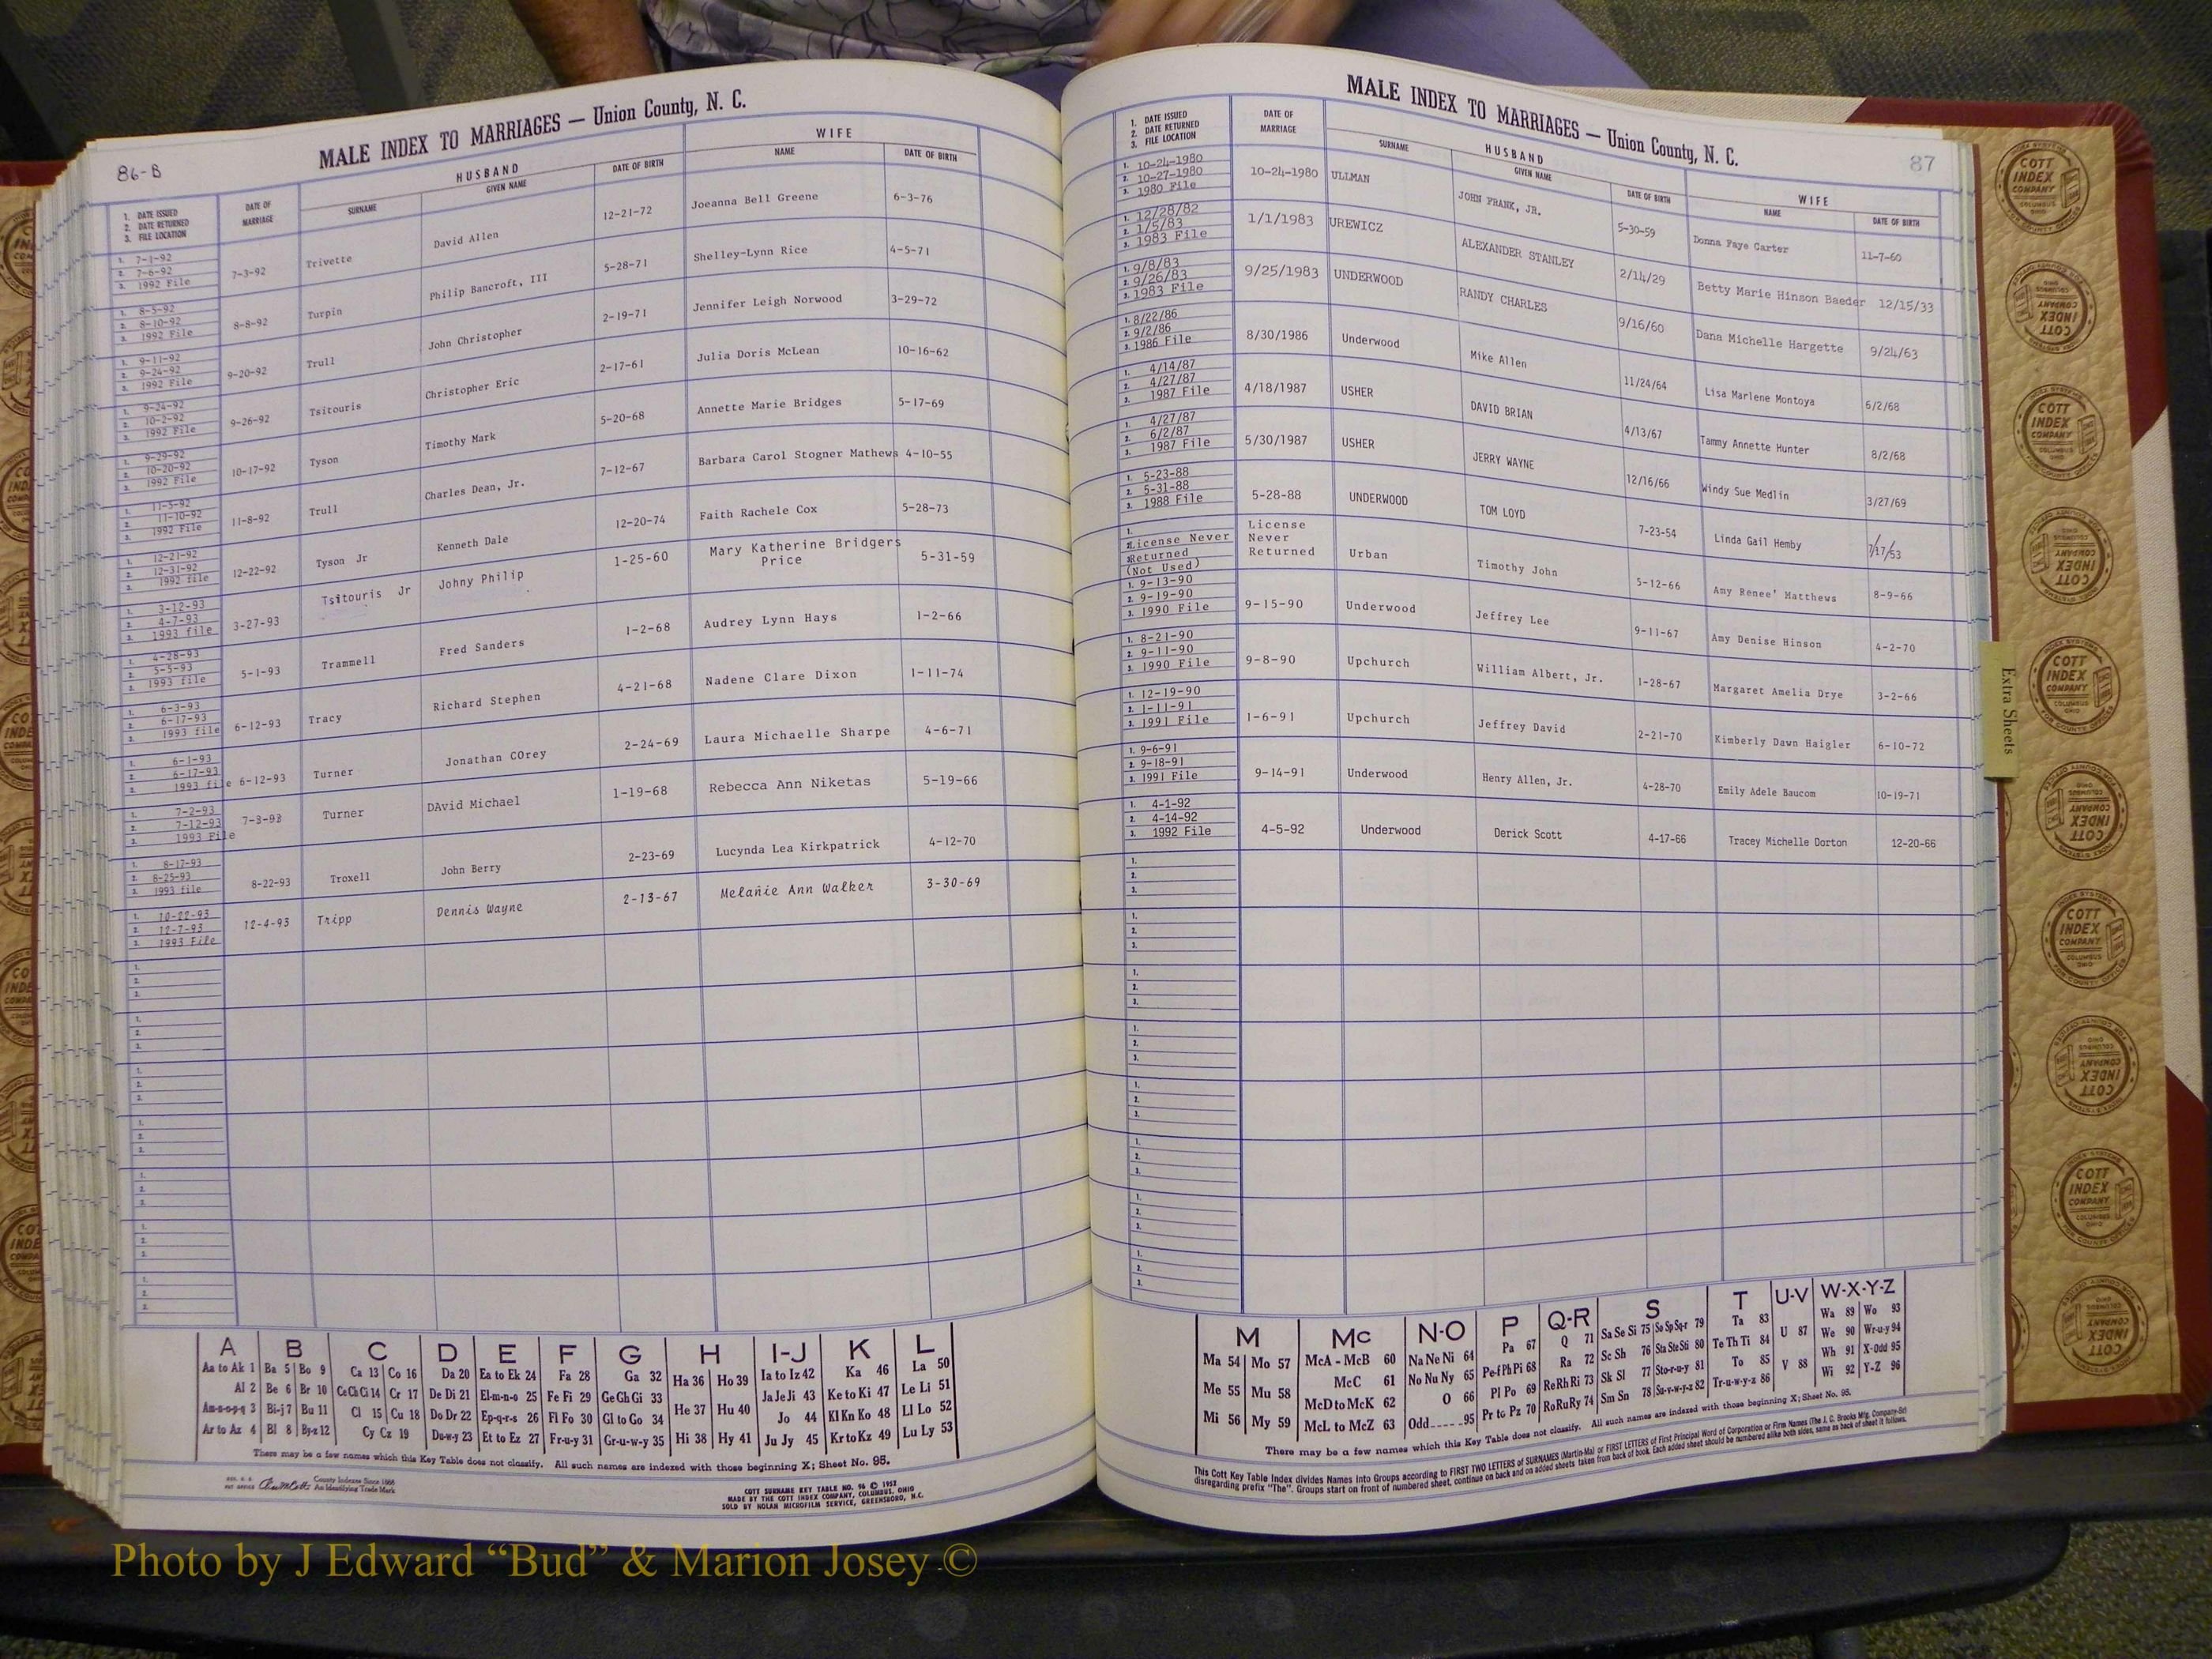 86-B
MALE INDEX TO MARRIAGES — Union County, N. C.
1. DATE ISSUED
2. DATE RETURNED
3. FILE LOCATION
DATE OF MARRIAGE
HUSBAND
SURNAME GIVEN NAME DATE OF BIRTH
WIFE
NAME DATE OF BIRTH
1. 7-1-92
2. 7-6-92
3. 1992 File
7-3-92 Trivette David Allen 12-21-72 Joeanna Bell Greene 6-3-76
1. 8-5-92
2. 8-10-92
3. 1992 File
8-8-92 Turpin Philip Bancroft, III 5-28-71 Shelley-Lynn Rice 4-5-71
1. 9-11-92
2. 9-24-92
3. 1992 File
9-20-92 Trull John Christopher 2-19-71 Jennifer Leigh Norwood 3-29-72
1. 9-24-92
2. 10-2-92
3. 1992 File
9-26-92 Tsitouris Christopher Eric 2-17-61 Julia Doris McLean 10-16-62
1. 9-29-92
2. 10-20-92
3. 1992 File
10-17-92 Tyson Timothy Mark 5-20-68 Annette Marie Bridges 5-17-69
1. 11-5-92
2. 11-10-92
3. 1992 File
11-8-92 Trull Charles Dean, Jr. 7-12-67 Barbara Carol Stogner Mathews 4-10-55
1. 12-21-92
2. 12-31-92
3. 1992 file
12-22-92 Tyson Jr Kenneth Dale 12-20-74 Faith Rachele Cox 5-28-73
1. 3-12-93
2. 4-7-93
3. 1993 file
3-27-93 Tsitouris Jr Johny Philip 1-25-60 Mary Katherine Bridgers Price 5-31-59
1. 4-28-93
2. 5-5-93
3. 1993 file
5-1-93 Trammell Fred Sanders 1-2-68 Audrey Lynn Hays 1-2-66
1. 6-3-93
2. 6-17-93
3. 1993 file
6-12-93 Tracy Richard Stephen 4-21-68 Nadene Clare Dixon 1-11-74
1. 6-1-93
2. 6-17-93
3. 1993 file
6-12-93 Turner Jonathan COrey 2-24-69 Laura Michaelle Sharpe 4-6-71
1. 7-2-93
2. 7-12-93
3. 1993 File
7-3-93 Turner DAvid Michael 1-19-68 Rebecca Ann Niketas 5-19-66
1. 8-17-93
2. 8-25-93
3. 1993 file
8-22-93 Troxell John Berry 2-23-69 Lucynda Lea Kirkpatrick 4-12-70
1. 10-22-93
2. 12-7-93
3. 1993 File
12-4-93 Tripp Dennis Wayne 2-13-67 Melanie Ann Walker 3-30-69
A B C D E F G H I-J K L
Aa to Ak 1 Ba 5 Bo 9 Ca 13 Co 16 Da 20 Ea to Ek 24 Fa 28 Ga 32 Ha 36 Ho 39 Ia to Iz 42 Ka 46 La 50
Al 2 Be 6 Br 10 Ce Ch Ci 14 Cr 17 De Di 21 El-m-n-o 25 Fe Fi 29 Ge Gh Gi 33 He 37 Hu 40 Ja Je Ji 43 Ke to Ki 47 Le Li 51
Am-n-o-p-q 3 Bi-j 7 Bu 11 Cl 15 Cu 18 Do Dr 22 Ep-q-r-s 26 Fl Fo 30 Gl to Go 34 Jo 44 Kl Kn Ko 48 Ll Lo 52
Ar to Az 4 Bl 8 By-z 12 Cy Cz 19 Du-w-y 23 Et to Ez 27 Fr-u-y 31 Gr-u-w-y 35 Hi 38 Hy 41 Ju Jy 45 Kr to Kz 49 Lu Ly 53
There may be a few names which this Key Table does not classify. All such names are indexed with those beginning X; Sheet No. 95.
County Indexes Since 1888
An Identifying Trade Mark
COTT SURNAME KEY TABLE NO. 96 © 1957
MADE BY THE COTT INDEX COMPANY, COLUMBUS, OHIO
SOLD BY NOLAN MICROFILM SERVICE, GREENSBORO, N.C.
MALE INDEX TO MARRIAGES — Union County, N. C.
87
1. DATE ISSUED
2. DATE RETURNED
3. FILE LOCATION
DATE OF MARRIAGE
HUSBAND
SURNAME GIVEN NAME DATE OF BIRTH
WIFE
NAME DATE OF BIRTH
1. 10-24-1980
2. 10-27-1980
3. 1980 File
10-24-1980 ULLMAN JOHN FRANK, JR. 5-30-59 Donna Faye Carter 11-7-60
1. 12/28/82
2. 1/5/83
3. 1983 File
1/1/1983 UREWICZ ALEXANDER STANLEY 2/14/29 Betty Marie Hinson Baeder 12/15/33
1. 9/8/83
2. 9/26/83
3. 1983 File
9/25/1983 UNDERWOOD RANDY CHARLES 9/16/60 Dana Michelle Hargette 9/24/63
1. 8/22/86
2. 9/2/86
3. 1986 File
8/30/1986 Underwood Mike Allen 11/24/64 Lisa Marlene Montoya 6/2/68
1. 4/14/87
2. 4/27/87
3. 1987 File
4/18/1987 USHER DAVID BRIAN 4/13/67 Tammy Annette Hunter 8/2/68
1. 4/27/87
2. 6/2/87
3. 1987 File
5/30/1987 USHER JERRY WAYNE 12/16/66 Windy Sue Medlin 3/27/69
1. 5-23-88
2. 5-31-88
3. 1988 File
5-28-88 UNDERWOOD TOM LOYD 7-23-54 Linda Gail Hemby 7/17/53
1.
License Never
Returned
(Not Used)
License Never Returned Urban Timothy John 5-12-66 Amy Renee' Matthews 8-9-66
1. 9-13-90
2. 9-19-90
3. 1990 File
9-15-90 Underwood Jeffrey Lee 9-11-67 Amy Denise Hinson 4-2-70
1. 8-21-90
2. 9-11-90
3. 1990 File
9-8-90 Upchurch William Albert, Jr. 1-28-67 Margaret Amelia Drye 3-2-66
1. 12-19-90
2. 1-11-91
3. 1991 File
1-6-91 Upchurch Jeffrey David 2-21-70 Kimberly Dawn Haigler 6-10-72
1. 9-6-91
2. 9-18-91
3. 1991 File
9-14-91 Underwood Henry Allen, Jr. 4-28-70 Emily Adele Baucom 10-19-71
1. 4-1-92
2. 4-14-92
3. 1992 File
4-5-92 Underwood Derick Scott 4-17-66 Tracey Michelle Dorton 12-20-66
Extra Sheets
M Mc N-O P Q-R S T U-V W-X-Y-Z
Ma 54 Mo 57 McA - McB 60 Na Ne Ni 64 Pa 67 Q 71 Sa Se Si 75 So Sp Sq-r 79 Ta 83 U 87 Wa 89 Wo 93
Me 55 Mu 58 McC 61 No Nu Ny 65 Pe-f Ph Pi 68 Ra 72 Sc Sh 76 Sta Ste Sti 80 Te Th Ti 84 We 90 Wr-u-y 94
McD to McK 62 O 66 Pl Po 69 Re Rh Ri 73 Sk Sl 77 Sto-r-u-y 81 To 85 V 88 Wh 91 X-Odd 95
Mi 56 My 59 McL to McZ 63 Odd 95 Pr to Pz 70 Ro Ru Ry 74 Sm Sn 78 Su-v-w-y-z 82 Tr-u-w-y-z 86 Wi 92 Y-Z 96
There may be a few names which this Key Table does not classify. All such names are indexed with those beginning X; Sheet No. 95.
This Cott Key Table Index divides Names Into Groups according to FIRST TWO LETTERS of SURNAMES (Martin-Ma) or FIRST LETTERS of First Principal Word of Corporation or Firm Names (The J. C. Brooks Mfg. Company-Br)
disregarding prefix "The". Groups start on front of numbered sheet, continue on back and on added sheets taken from back of book. Each added sheet should be numbered alike both sides, same as back of sheet it follows.
COTT INDEX COMPANY COLUMBUS OHIO
Photo by J Edward “Bud” & Marion Josey ©